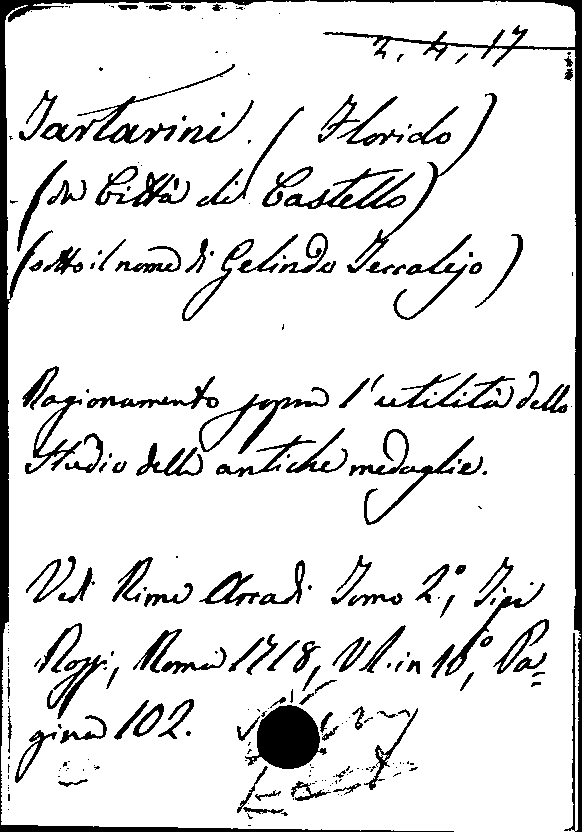 2. 4, 17
Tartarini. (Florido)
(di Città di Castello)
(sotto il nome di Gelindo Teccalejo)
Ragionamento sopra l'utilità dello
Studio delle antiche medaglie.
Vedi Rime Arcadi Tomo 2°, Tipi
Rossi, Roma 1718, Vl. in 16°, Pa=
gina 102.